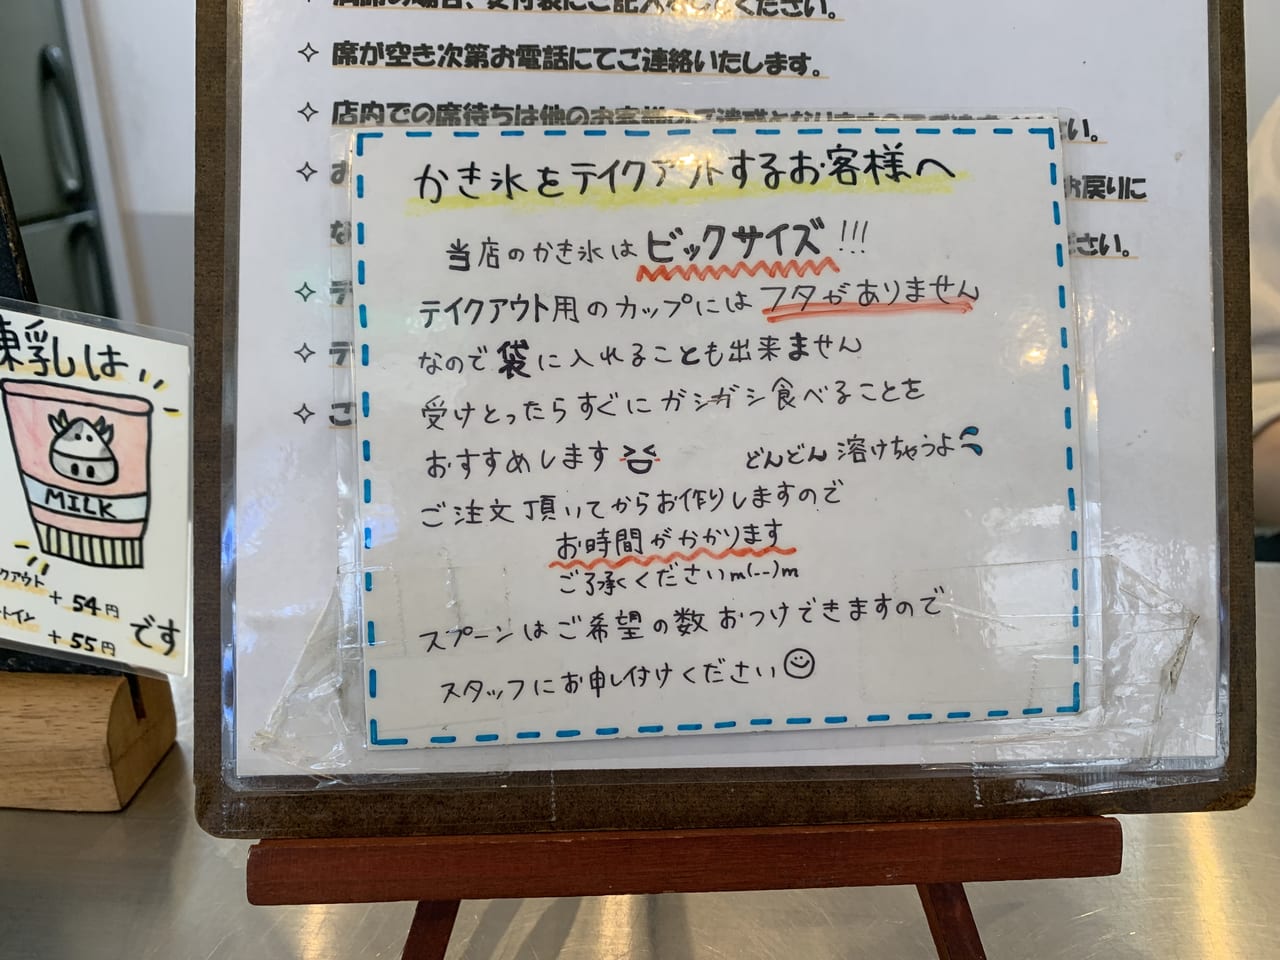 席が空き次第お電話にてご連絡いたします。
店内での席待ちは他のお客様の
い。
お戻りに
さい。
かき氷をテイクアウトするお客様へ
当店のかき氷はビックサイズ!!!
テイクアウト用のカップにはフタがありません
なので袋に入れることも出来ません
受けとったらすぐにガシガシ食べることを
おすすめします
どんどん溶けちゃうよ
ご注文頂いてからお作りしますので
お時間がかかります
ご了承くださいm(--)m
スプーンはご希望の数おつけできますので
スタッフにお申し付けください
練乳は
MILK
クアウト +54円
トイン +55円
です